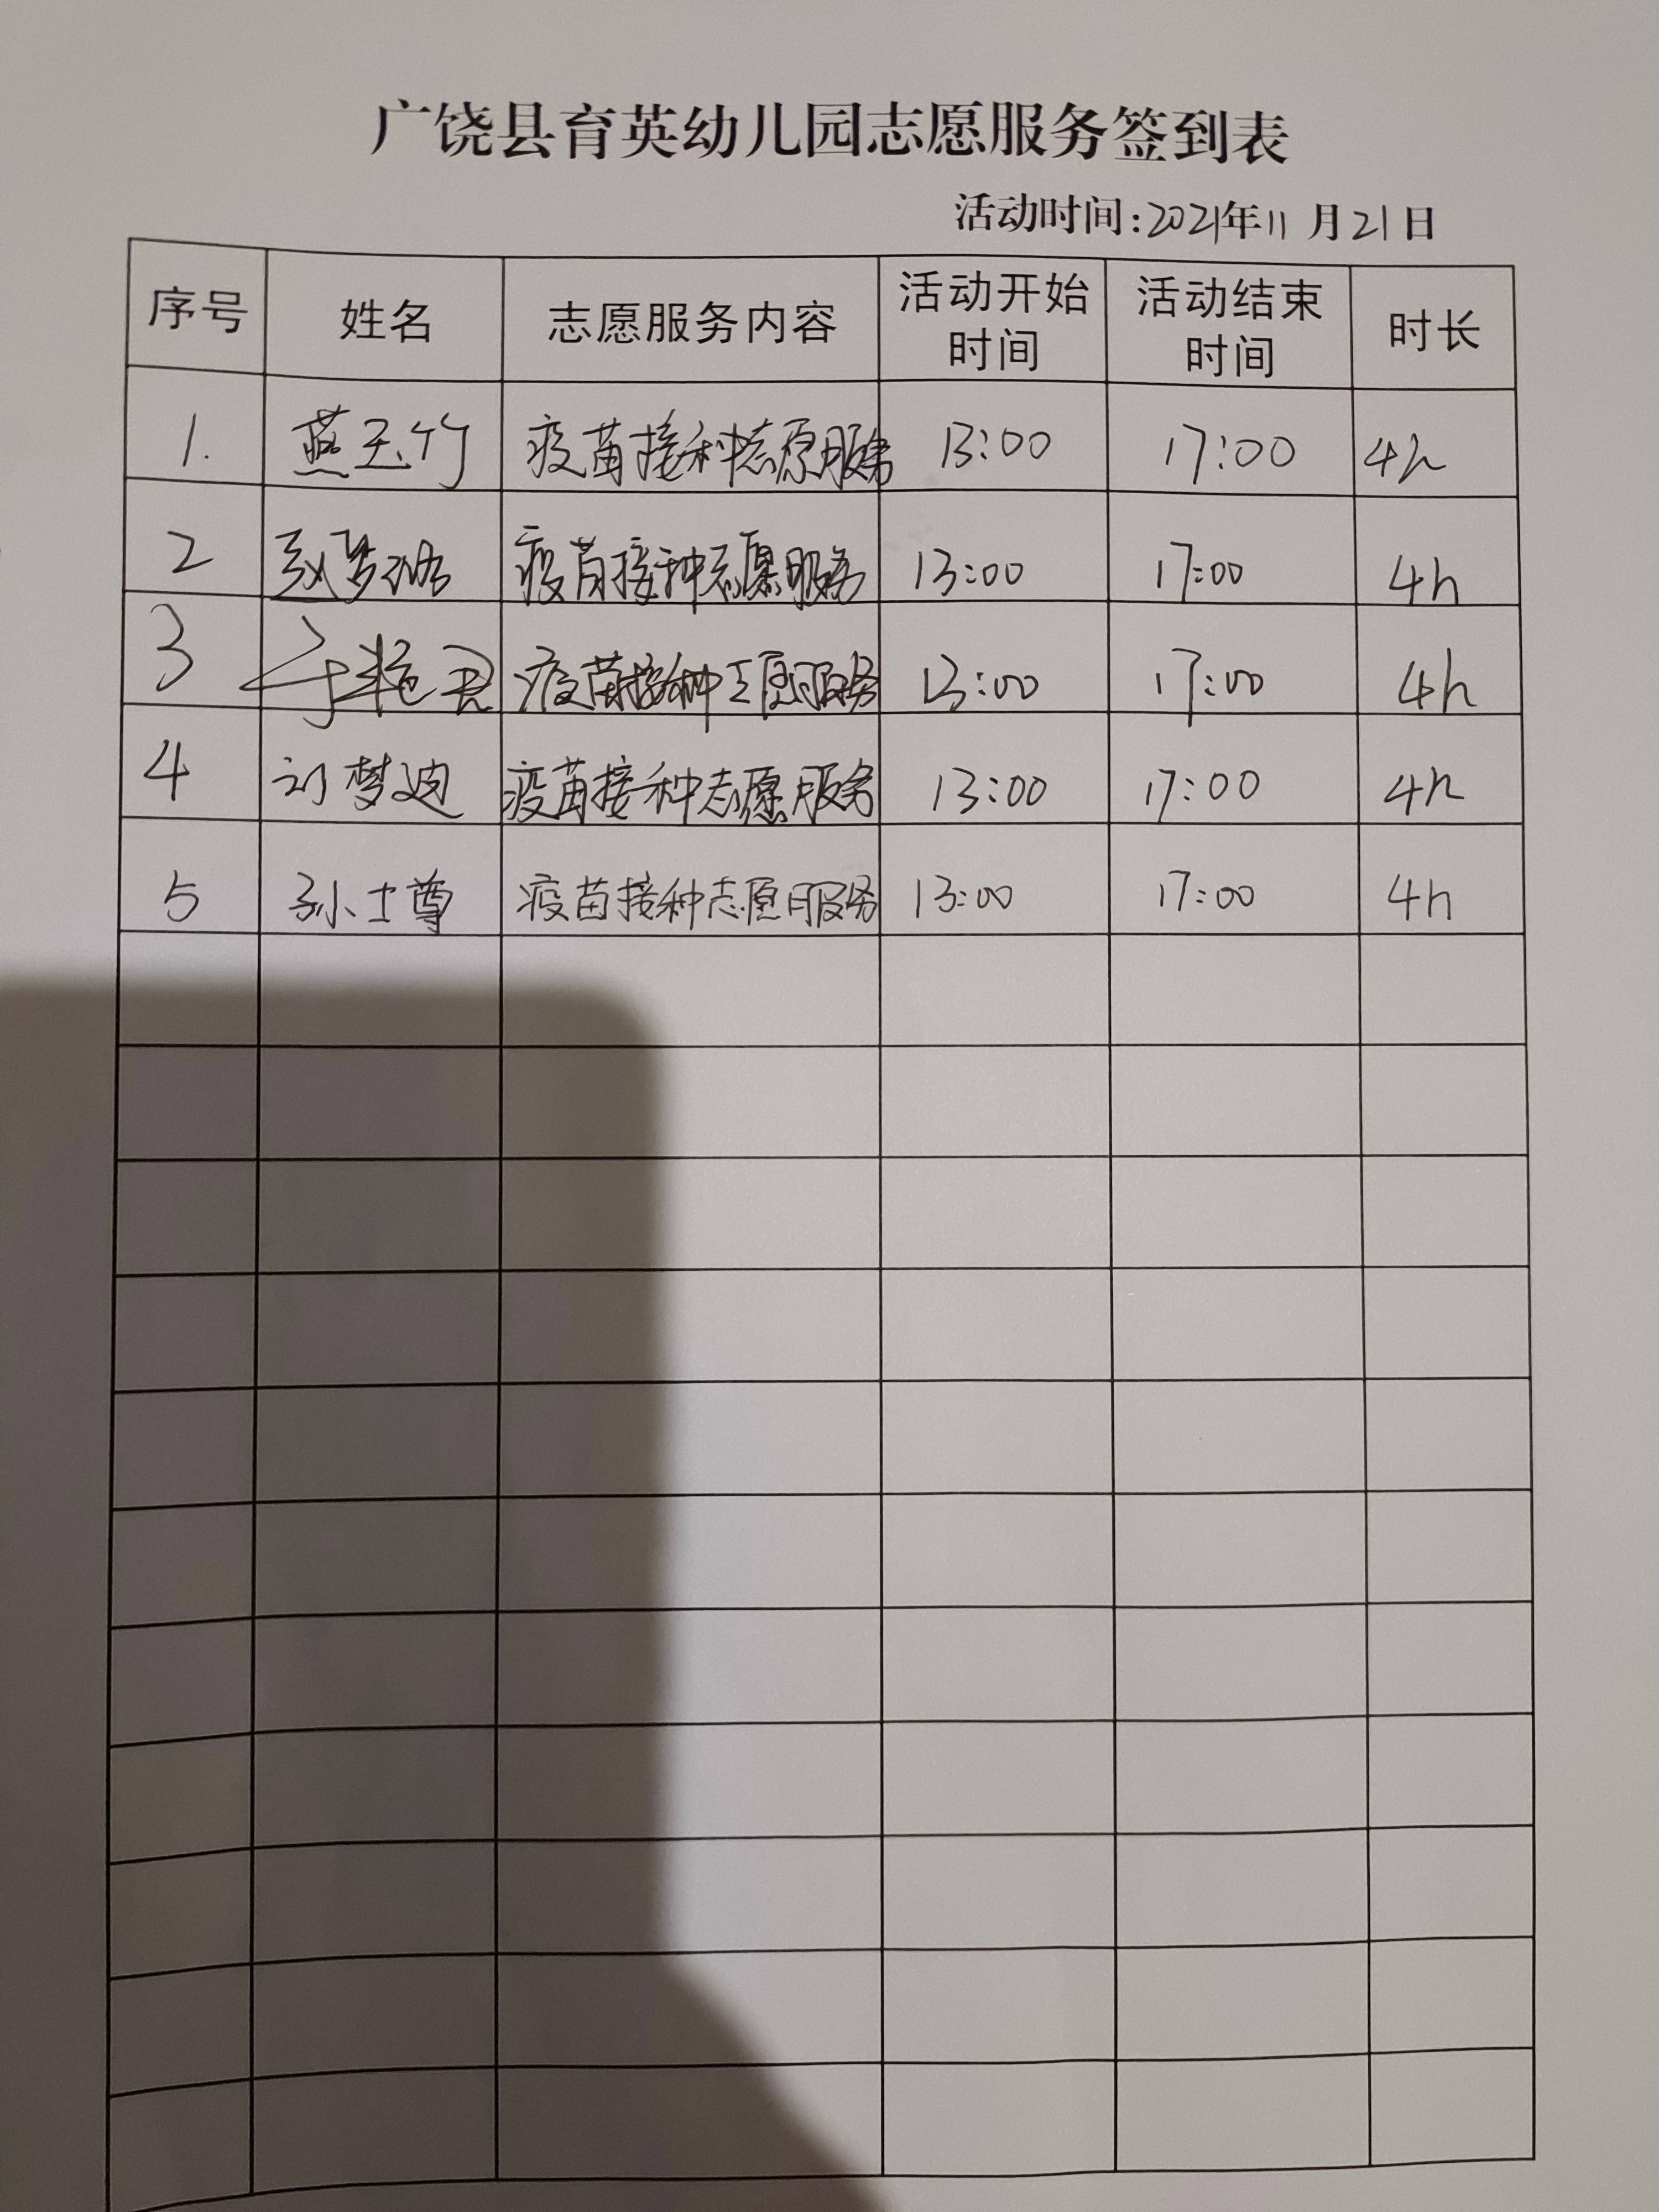 广饶县育英幼儿园志愿服务签到表
活动时间:2021年11月21日
序号 姓名 志愿服务内容 活动开始时间 活动结束时间 时长
1. 燕玉竹 疫苗接种志原服务 13:00 17:00 4h
2 赵梦 疫苗接种志愿服务 13:00 17:00 4h
3 疫苗接种志愿服务 13:00 17:00 4h
4 刘梦迪 疫苗接种志愿服务 13:00 17:00 4h
5 孙士尊 疫苗接种志愿服务 13:00 17:00 4h